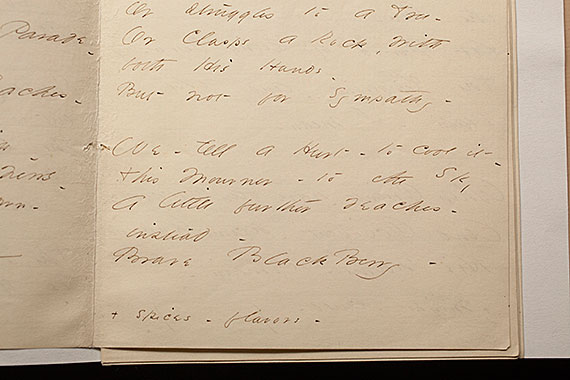 Parade -
eaches -
Or struggles to a Tree -
Or Clasps a Rock, with
both His Hands -
But not for Sympathy -
We - tell a Hurt - to cool it -
This Mourner - to the Sky
A little further reaches -
instead -
Brave Black Berry -
+ spices - flavors -